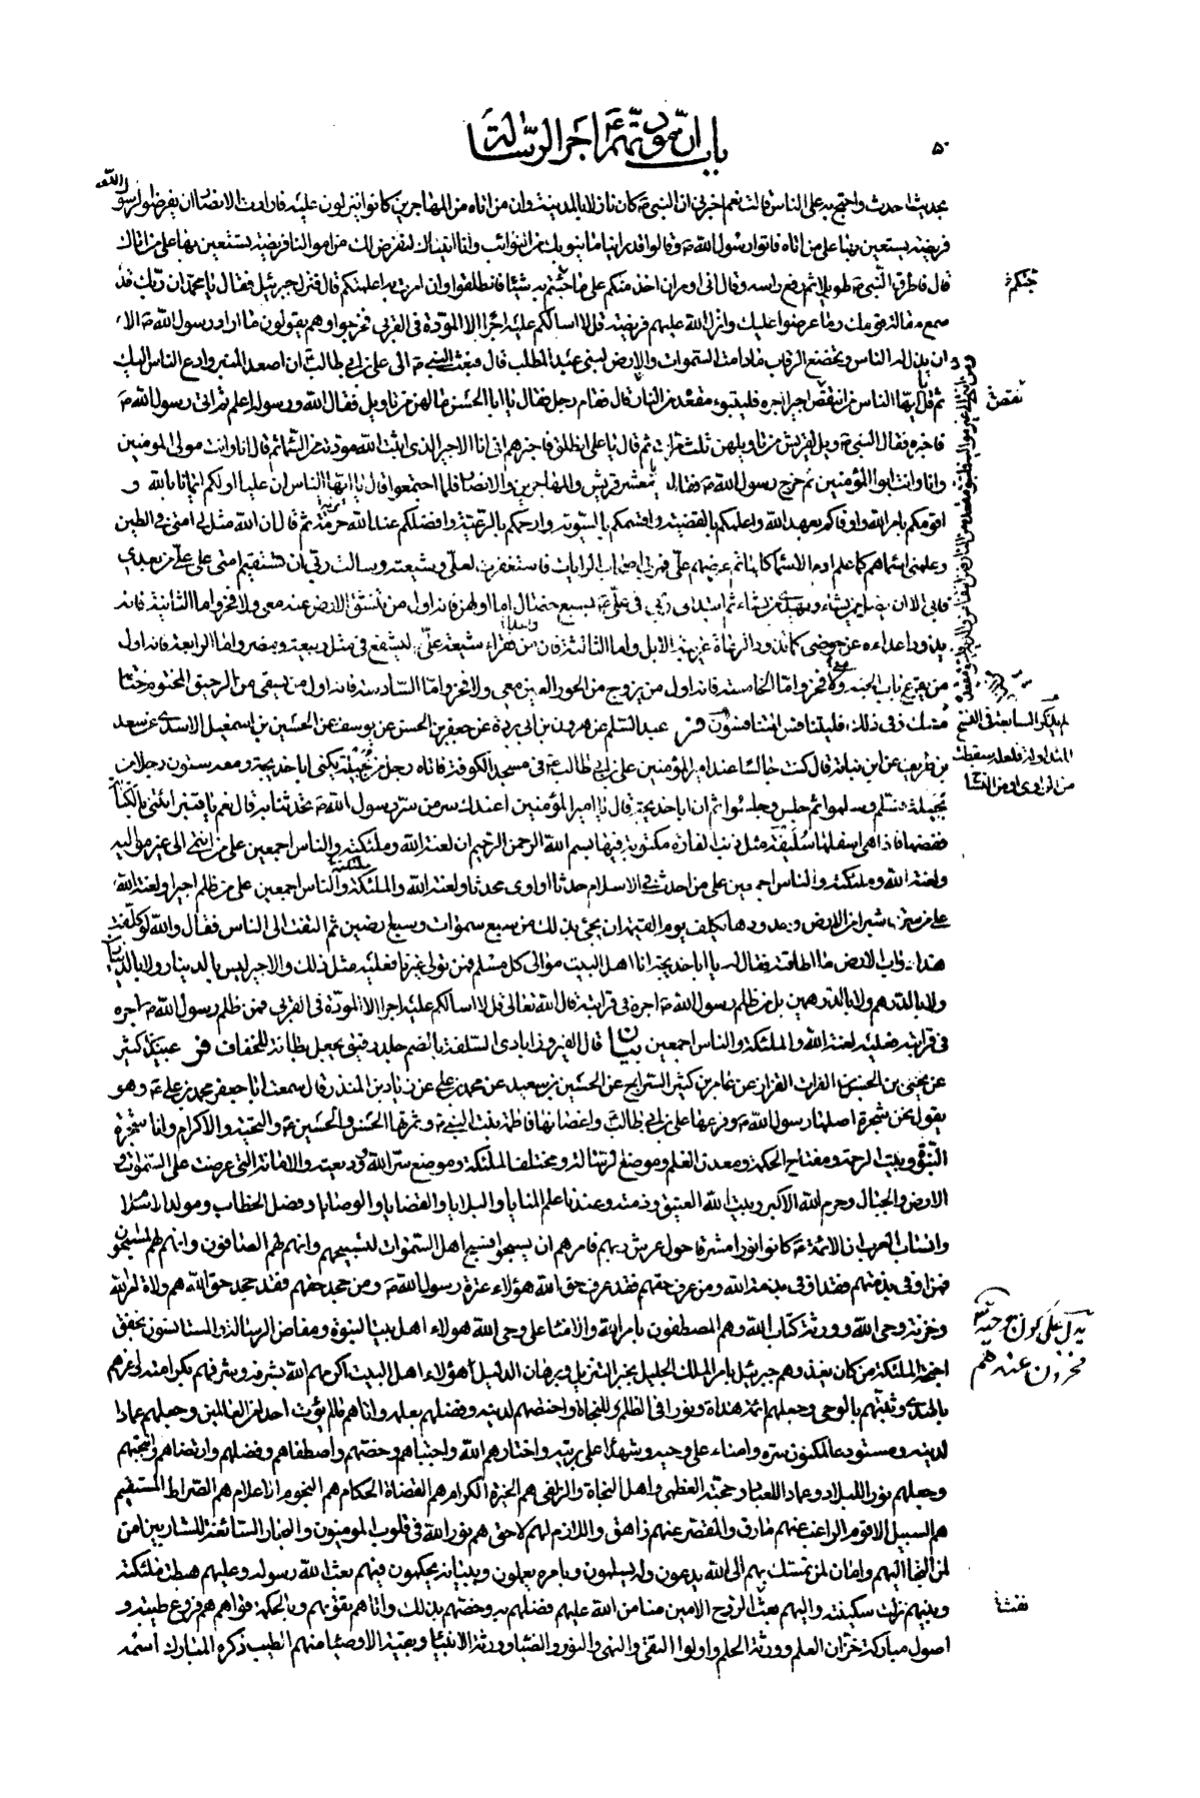 ٥٠
باب ان مودتهم اجر الرسالة
بحديث احدث واحتج به على الناس قالت نعم اخبرني ان النبي ص كان نازلا بالمدينة وان من اتاه من المهاجرين كانوا ينزلون عليه فارادت الانصار ان يفرضوا لرسول الله
فريضة يستعين بها على من اتاه فاتوا رسول الله ص وقالوا قد راينا ما ينوبك من النوائب وانا اتيناك لنفرض لك من اموالنا فريضة تستعين بها على من اتاك
قال فاطرق النبي ص طويلا ثم رفع راسه وقال اني لم اومر ان اخذ منكم على ما جئتم به شيئا فانطلقوا وان امرت به اعلمتكم قال فنزل جبرئيل فقال يا محمد ان ربك قد
جئتكم
سمع مقالة قومك وما عرضوا عليك وانزل الله عليهم فريضة قل لا اسالكم عليه اجرا الا المودة في القربى فخرجوا وهم يقولون ما اراد رسول الله ص الا
ان يذل له الناس وتخضع الرقاب ما دامت السموات والارض لبني عبد المطلب قال فبعث النبي ص الى علي بن ابي طالب ان اصعد المنبر وادع الناس اليك
ثم قل ايها الناس من انتقص اجيرا اجره فليتبوء مقعده من النار قال فقام رجل فقال يا ابا الحسن ما لهن من تاويل فقال الله ورسوله اعلم ثم اتى رسول الله ص
نقص
فاخبره فقال النبي ص ويل لقريش من تاويلهن ثلث مرات ثم قال يا علي انطلق فاخبرهم اني انا الاجير الذي اثبت الله مودته من السماء ثم قال انا وانت مولى المؤمنين
وانا وانت ابوا المؤمنين ثم خرج رسول الله ص فقال يا معشر قريش والمهاجرين والانصار فلما اجتمعوا قال يا ايها الناس ان عليا اولكم ايمانا بالله و
اقومكم بامر الله واوفاكم بعهد الله واعلمكم بالقضية واقسمكم بالسوية وارحمكم بالرعية وافضلكم عند الله مزية ثم قال ان الله مثل لي امتي في الطين
وعلمني اسماءهم كما علم ادم الاسماء كلها ثم عرضهم علي فمر بي اصحاب الرايات فاستغفرت لعلي وشيعته وسالت ربي ان تستقيم امتي على علي من بعدي
فابى الا ان يضل من يشاء ويهدي من يشاء ثم ابتداني ربي في علي ع بسبع خصال اما اولهن فانه اول من تنشق الارض عنه معي ولا فخر واما الثانية فانه
يذود اعداءه عن حوضي كما تذود الرعاة غريبة الابل واما الثالثة فان من فقراء شيعة علي ليشفع في مثل ربيعة ومضر واما الرابعة فانه اول
من يقرع باب الجنة معي ولا فخر واما الخامسة فانه اول من يزوج من الحور العين معي ولا فخر واما السادسة فانه اول من يسقى من الرحيق المختوم ختامه
مسك وفي ذلك فليتنافس المتنافسون فر عبد السلم عن هرون بن ابي بردة عن جعفر بن الحسن عن يوسف عن الحسين بن اسمعيل الاسدي عن سعد
لم يذكر السابعة في النسخ
بن طريف عن ابن نباتة قال كنت جالسا عند امير المؤمنين علي بن ابي طالب ع في مسجد الكوفة فاتاه رجل من بجيلة يكنى ابا خديجة ومعه ستون رجلا من
المتداولة فلعله سقطت
من الراوي او من النساخ
بجيلة فسلم وسلموا ثم جلس وجلسوا ثم ان ابا خديجة قال يا امير المؤمنين اعندك سر من سر رسول الله ص تحدثنا به قال نعم يا قنبر ائتني بالكتابة
ففضها فاذا في اسفلها سليفة مثل ذنب الفارة مكتوبة فيها بسم الله الرحمن الرحيم ان لعنة الله وملئكته والناس اجمعين على من انتمى الى غير مواليه
ولعنة الله وملئكته والناس اجمعين على من احدث في الاسلام حدثا او اوى محدثا ولعنة الله والملئكة والناس اجمعين على من ظلم اجيرا ولعنة الله
على من سرق شبرا من الارض وحدودها يكلف يوم القيمة ان يجئ بذلك من سبع سموات وسبع ارضين ثم التفت الى الناس فقال والله لو كلفت
هذا دواب الارض ما اطاقته فقال له يا ابا خديجة انا اهل البيت موالي كل مسلم فمن تولى غيرنا فعليه مثل ذلك والاجير ليس بالدينار ولا بالدينارين
ولا بالدرهم ولا بالدرهمين بل من ظلم رسول الله ص اجره في قرابته قال الله تعالى قل لا اسالكم عليه اجرا الا المودة في القربى فمن ظلم رسول الله ص اجره
في قرابته فعليه لعنة الله والملئكة والناس اجمعين بيان قال الفيروزابادي السلفة بالضم جلد رقيق يجعل بطانة للخفاف فر عبيد بن كثير
عن يحيى بن الحسن بن الفرات القزاز عن عامر بن كثير السراج عن الحسين بن سعيد عن محمد بن علي عن زياد بن المنذر قال سمعت ابا جعفر محمد بن علي ع وهو
يقول نحن شجرة اصلها رسول الله ص وفرعها علي بن ابي طالب واغصانها فاطمة بنت النبي ص وثمرتها الحسن والحسين ع والتحية والاكرام وانا شجرة
النبوة وبيت الرحمة ومفتاح الحكمة ومعدن العلم وموضع الرسالة ومختلف الملئكة وموضع سر الله ووديعته والامانة التي عرضت على السموات و
الارض والجبال وحرم الله الاكبر وبيت الله العتيق وذمته وعندنا علم المنايا والبلايا والقضايا والوصايا وفصل الخطاب ومولد الاسلام
وانساب العرب ان الائمة ع كانوا نورا مشرقا حول عرش ربهم فامرهم ان يسبحوا فسبح اهل السموات لتسبيحهم وانهم لهم الصافون وانهم لهم المسبحون
فمن اوفى بذمتهم فقد اوفى بذمة الله ومن عرف حقهم فقد عرف حق الله هؤلاء عترة رسول الله ص ومن جحد حقهم فقد جحد حق الله هم ولاة امر الله
وخزنة وحي الله وورثة كتاب الله وهم المصطفون بامر الله والامناء على وحي الله هؤلاء اهل بيت النبوة ومفاض الرسالة والمستانسون بخفق
مخزون عندهم
اجنحة الملئكة من كان يغذوهم جبرئيل بامر الملك الجليل بخبر التنزيل وبرهان الدليل هؤلاء اهل البيت اكرمهم الله بشرفه وشرفهم بكرامته واعزهم
بالهدى وثبتهم بالوحي وجعلهم ائمة هداة ونورا في الظلم للنجاة واختصهم لدينه وفضلهم بعلمه واتاهم ما لم يؤت احدا من العالمين وجعلهم عمادا
لدينه ومستودعا لمكنون سره وامناء على وحيه وشهداء على بريته واختارهم الله واجتباهم وخصهم واصطفاهم وفضلهم وارتضاهم وانتجبهم
وجعلهم نورا للبلاد وعمادا للعباد وحجته العظمى واهل النجاة والزلفى هم الخيرة الكرام هم القضاة الحكام هم النجوم الاعلام هم الصراط المستقيم
هم السبيل الاقوم الراغب عنهم مارق والمقصر عنهم زاهق واللازم لهم لاحق هم نور الله في قلوب المؤمنين والبحار السائغة للشاربين امن
لمن التجا اليهم وامان لمن تمسك بهم الى الله يدعون وله يسلمون وبامره يعملون وببيانه يحكمون فيهم بعث الله رسوله وعليهم هبطت ملئكته
وبينهم نزلت سكينته واليهم بعث الروح الامين منا من الله عليهم فضلهم به وخصهم بذلك واتاهم تقويهم وبالحكمة قواهم هم فروع طيبة و
اصول مباركة خزان العلم وورثة الحلم واولوا التقى والنهى والنور والضياء وورثة الانبياء وبقية الاوصياء منهم الطيب ذكره المبارك اسمه